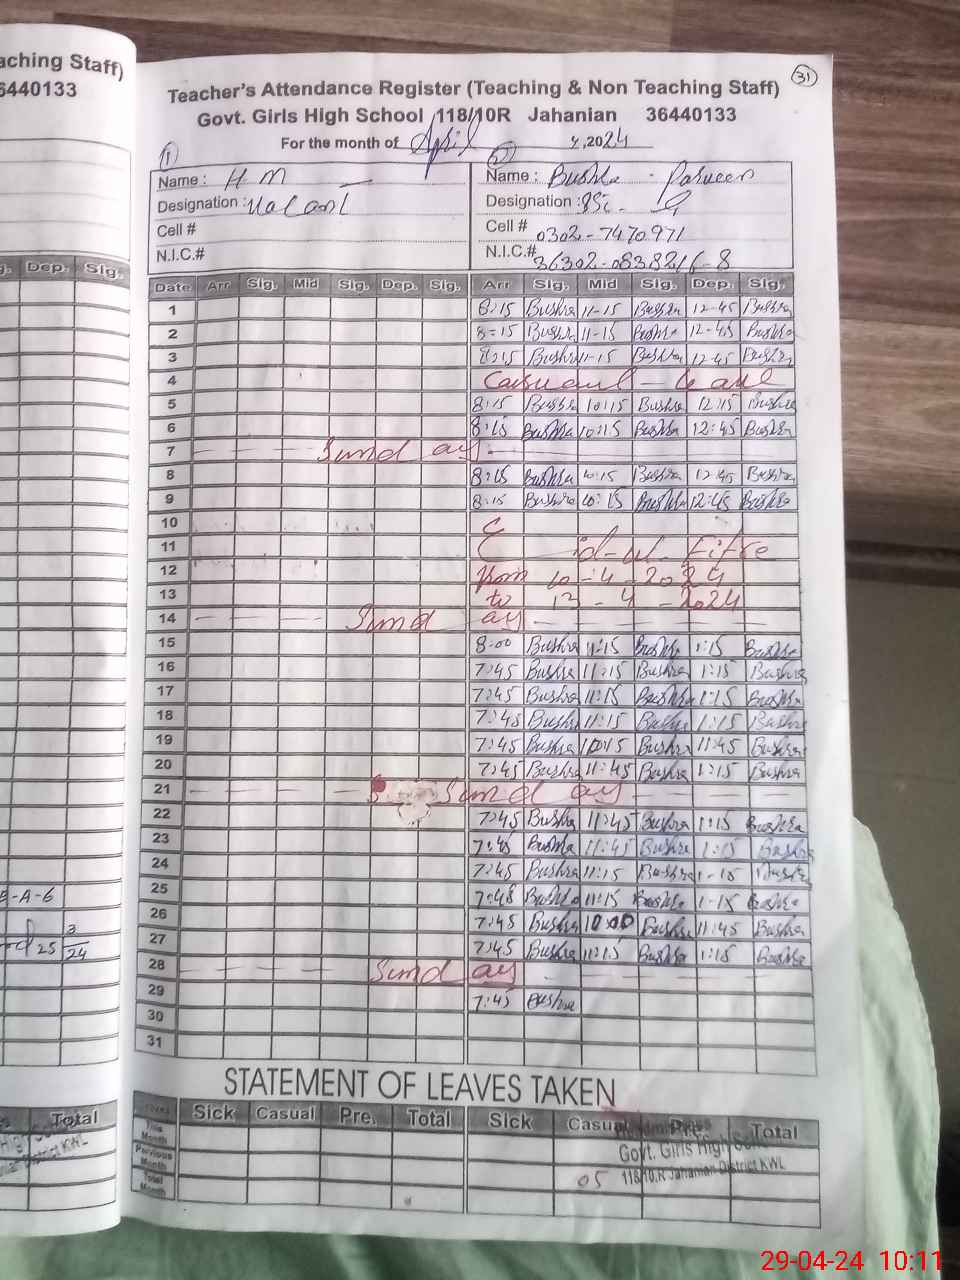 aching Staff)
36440133
31
Teacher's Attendance Register (Teaching & Non Teaching Staff)
Govt. Girls High School 118/10R Jahanian 36440133
For the month of April ,2024
1
Name : H M
Designation :
Cell #
N.I.C.#
Name : Bushra Parveen
Designation :
Cell # 0302-7470971
N.I.C.# 36302-0838216-8
Dep. Sig.
Date Arr Sig. Mid Sig. Dep. Sig. Arr Sig. Mid Sig. Dep. Sig.
1 8:15 Bushra 11-15 Bushra 12-45 Bushra
2 8-15 Bushra 11-15 Bushra 12-45 Bushra
3 8:15 Bushra 11-15 Bushra 12-45 Bushra
4
5 8:15 Bushra 10:15 Bushra 12:15 Bushra
6 8:15 Bushra 10:15 Bushra 12:45 Bushra
7 Sunday
8 8:15 Bushra 10:15 Bushra 12:45 Bushra
9 8:15 Bushra 10:15 Bushra 12:45 Bushra
10
11 Eid-ul-Fitre
12 from 10-4-2024
13 to 13-4-2024
14 Sunday
15 8-00 Bushra 11:15 Bushra 1:15 Bushra
16 7:45 Bushra 11:15 Bushra 1:15 Bushra
17 7:45 Bushra 11:15 Bushra 1:15 Bushra
18 7:45 Bushra 11:15 Bushra 1:15 Bushra
19 7:45 Bushra 10:15 Bushra 11:45 Bushra
20 7:45 Bushra 11:45 Bushra 1:15 Bushra
21 Sunday
22 7:45 Bushra 11:45 Bushra 1:15 Bushra
23 7:45 Bushra 11:45 Bushra 1:15 Bushra
24 7:45 Bushra 11:15 Bushra 1-15 Bushra
25 7:45 Bushra 11:15 Bushra 1-15 Bushra
26 7:45 Bushra 10:00 Bushra 11:45 Bushra
27 7:45 Bushra 11:15 Bushra 1:15 Bushra
28 Sunday
29 7:45 Bushra
30
31
-A-6
25 3/24
STATEMENT OF LEAVES TAKEN
Total
Sick Casual Pre. Total Sick Casual Pre. Total
This Month
Pervious Month
Total Month
05
Govt. Girls High School
118/10.R Jahanian District KWL
29-04-24 10:11